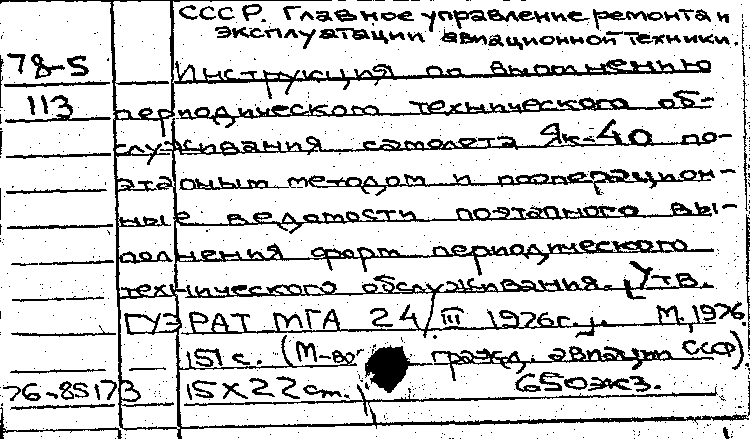 СССР. Главное управление ремонта и
эксплуатации авиационной техники.
78-5 Инструкция по выполнению
113 периодического технического об-
служивания самолета Як-40 по-
этапным методом и пооперацион-
ные ведомости поэтапного вы-
полнения форм периодического
технического обслуживания. [Утв.
ГУЭРАТ МГА 24/III 1976г.]. М, 1976
151 с. (М-во гражд. авиации СССР)
76-85173 15X22 cm. 650экз.